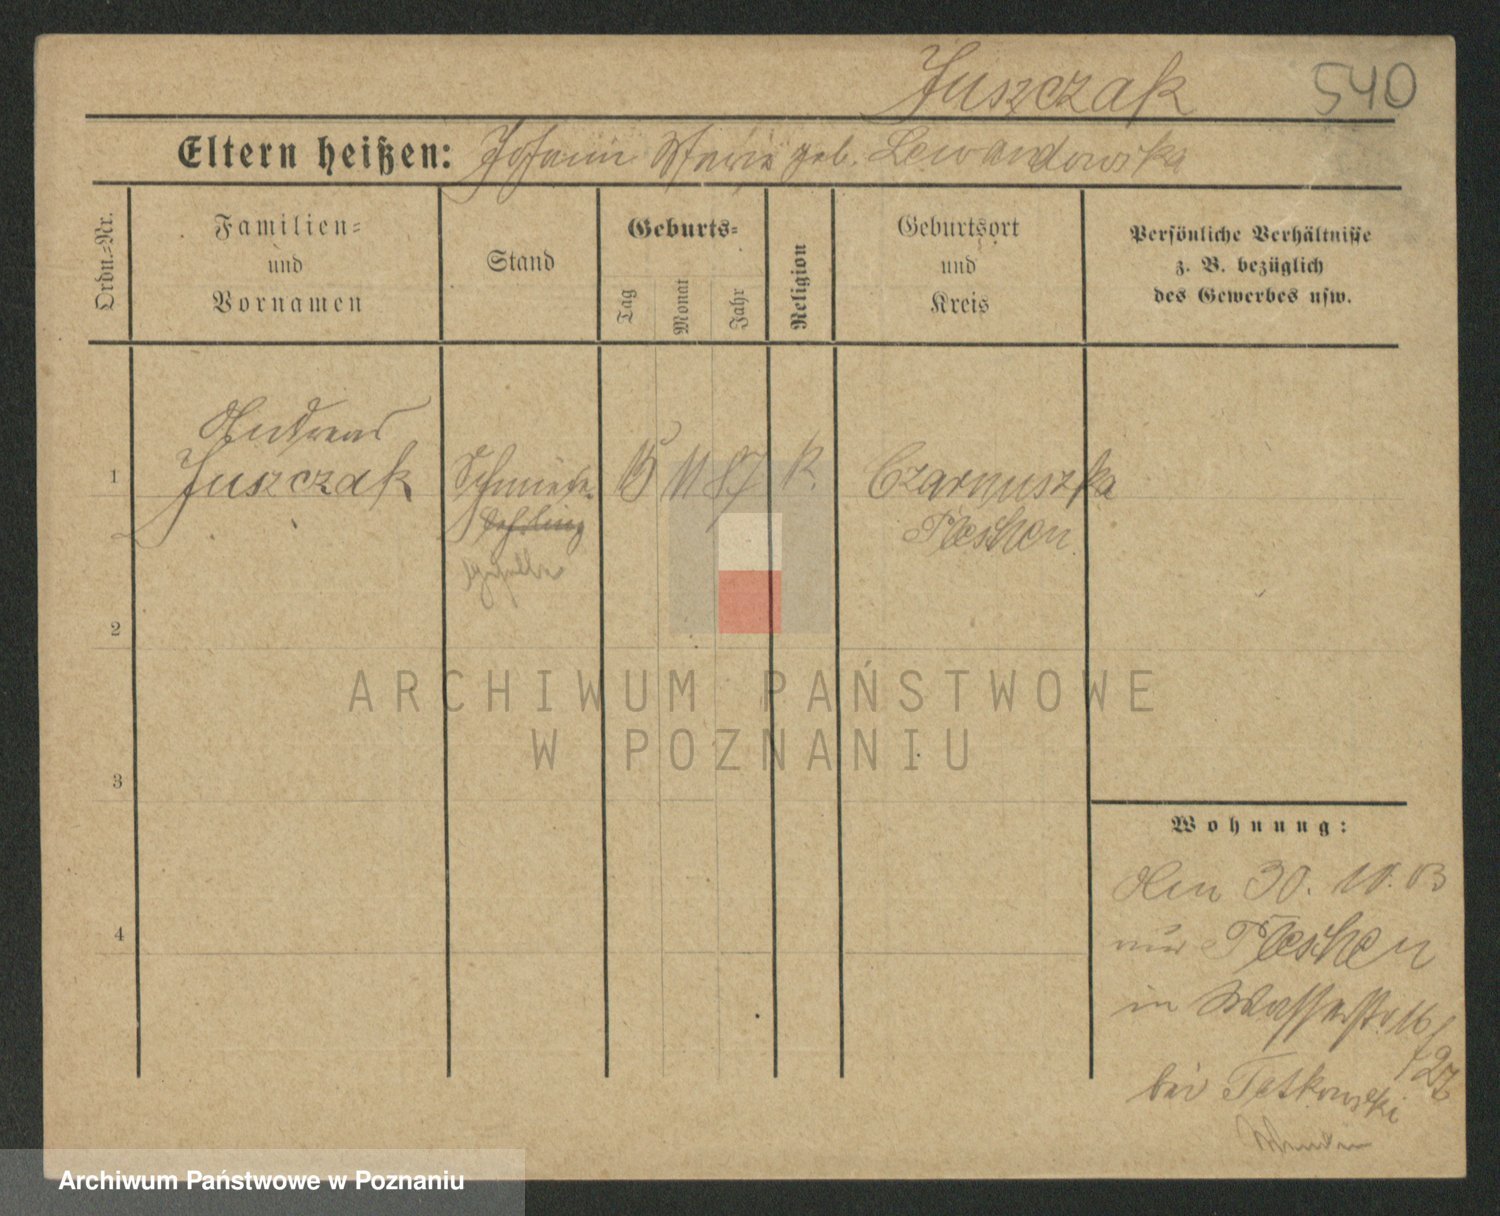 Juszczak 540
Eltern heißen: Johann Marie geb. Lewandowska
Ordn.-Nr.
Familien-
und
Vornamen
Stand
Geburts-
Tag
Monat
Jahr
Religion
Geburtsort
und
Kreis
Persönliche Verhältnisse
z. B. bezüglich
des Gewerbes usw.
Andreas
1 Juszczak Schmiede- 15 11 87 k. Czarnuszka
Lehrling Pleschen
geselle
2
3
4
ARCHIWUM PAŃSTWOWE
W POZNANIU
Wohnung:
Den 30. 10. 03
aus Pleschen
in Wasserstr. 16
/27
bei Tetkowski
Archiwum Państwowe w Poznaniu